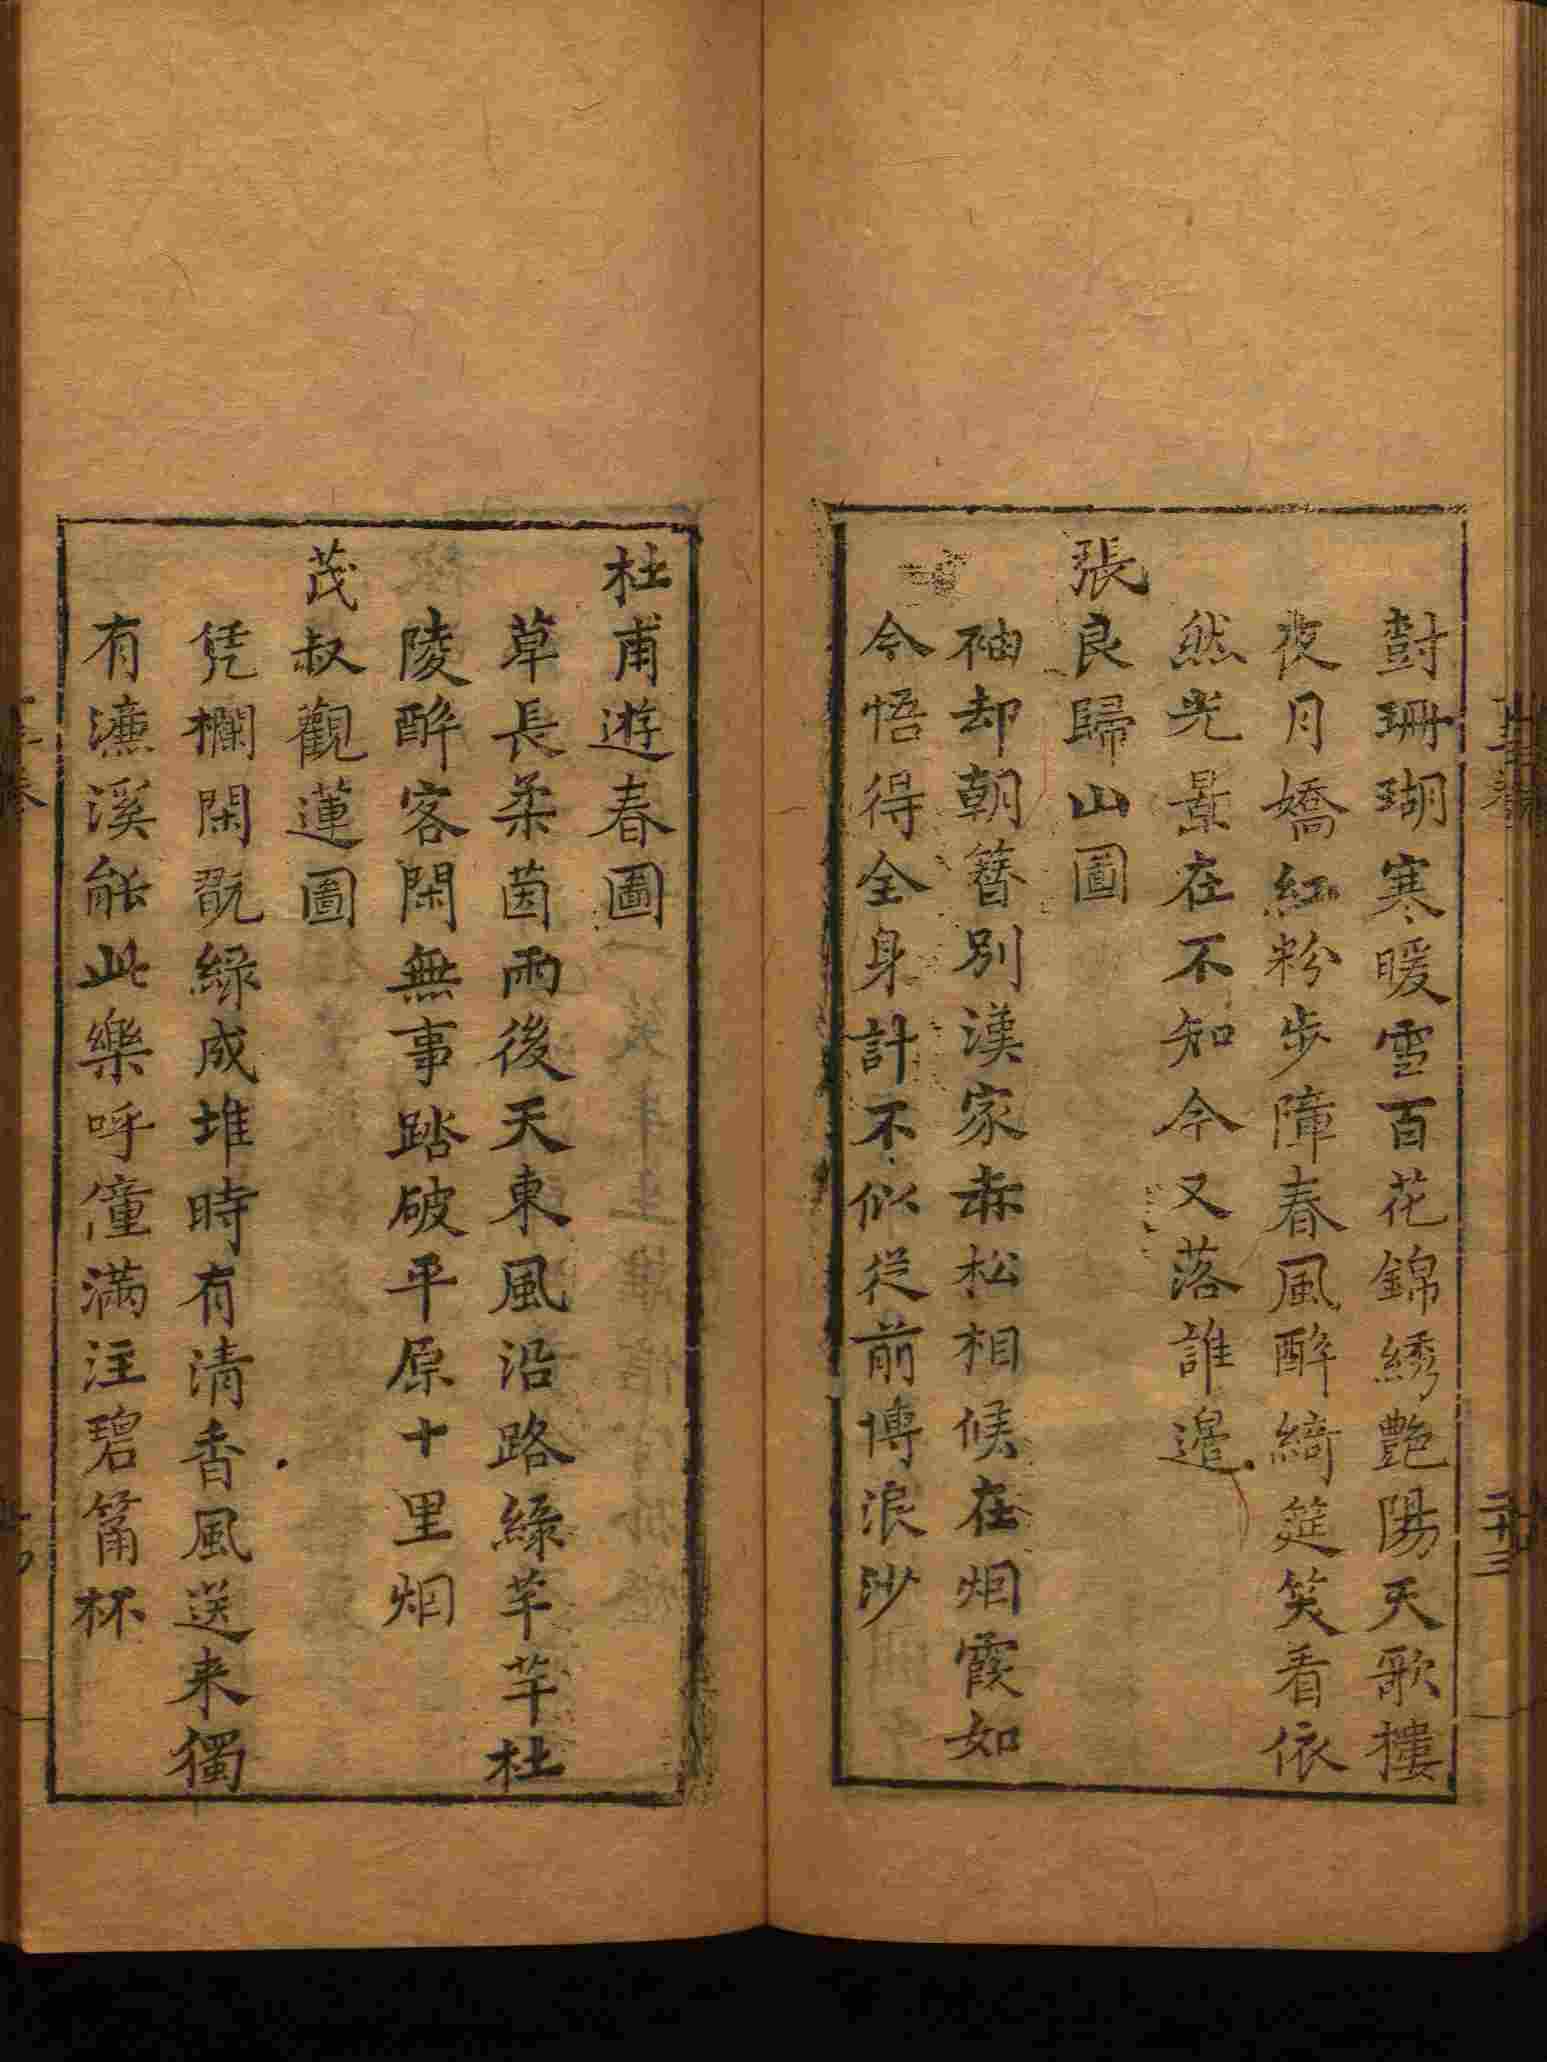 對珊瑚寒暖雪百花錦綉艷陽天歌摟
夜月嬌紅粉步障春風醉綺筵笑看依
然光景在不知今又落誰邊
張良歸山圖
袖却朝簪別漢家赤松相候在烟霞如
今悟得全身計不似從前博浪沙
杜甫遊春圖
草長柔茵雨後天東風沿路綠芊芊杜
陵醉客閑無事踏破平原十里烟
茂叔觀蓮圖
凭欄閑翫綠成堆時有清香風送来獨
有濂溪能此樂呼僮滿注碧筩杯